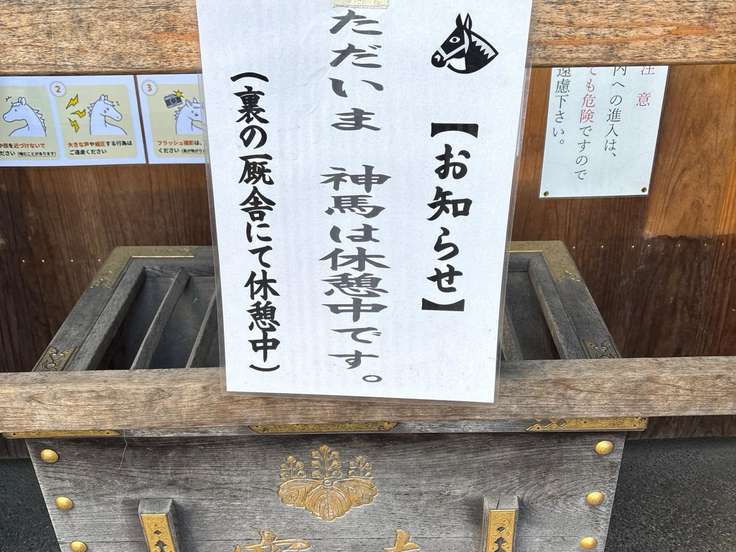 【お知らせ】
ただいま 神馬は休憩中です。
(裏の厩舎にて休憩中)
注意
内への進入は、
ても危険ですので
遠慮下さい。
2
大きな声や威圧する行為は
ご遠慮ください
3
フラッシュ撮影は
ください